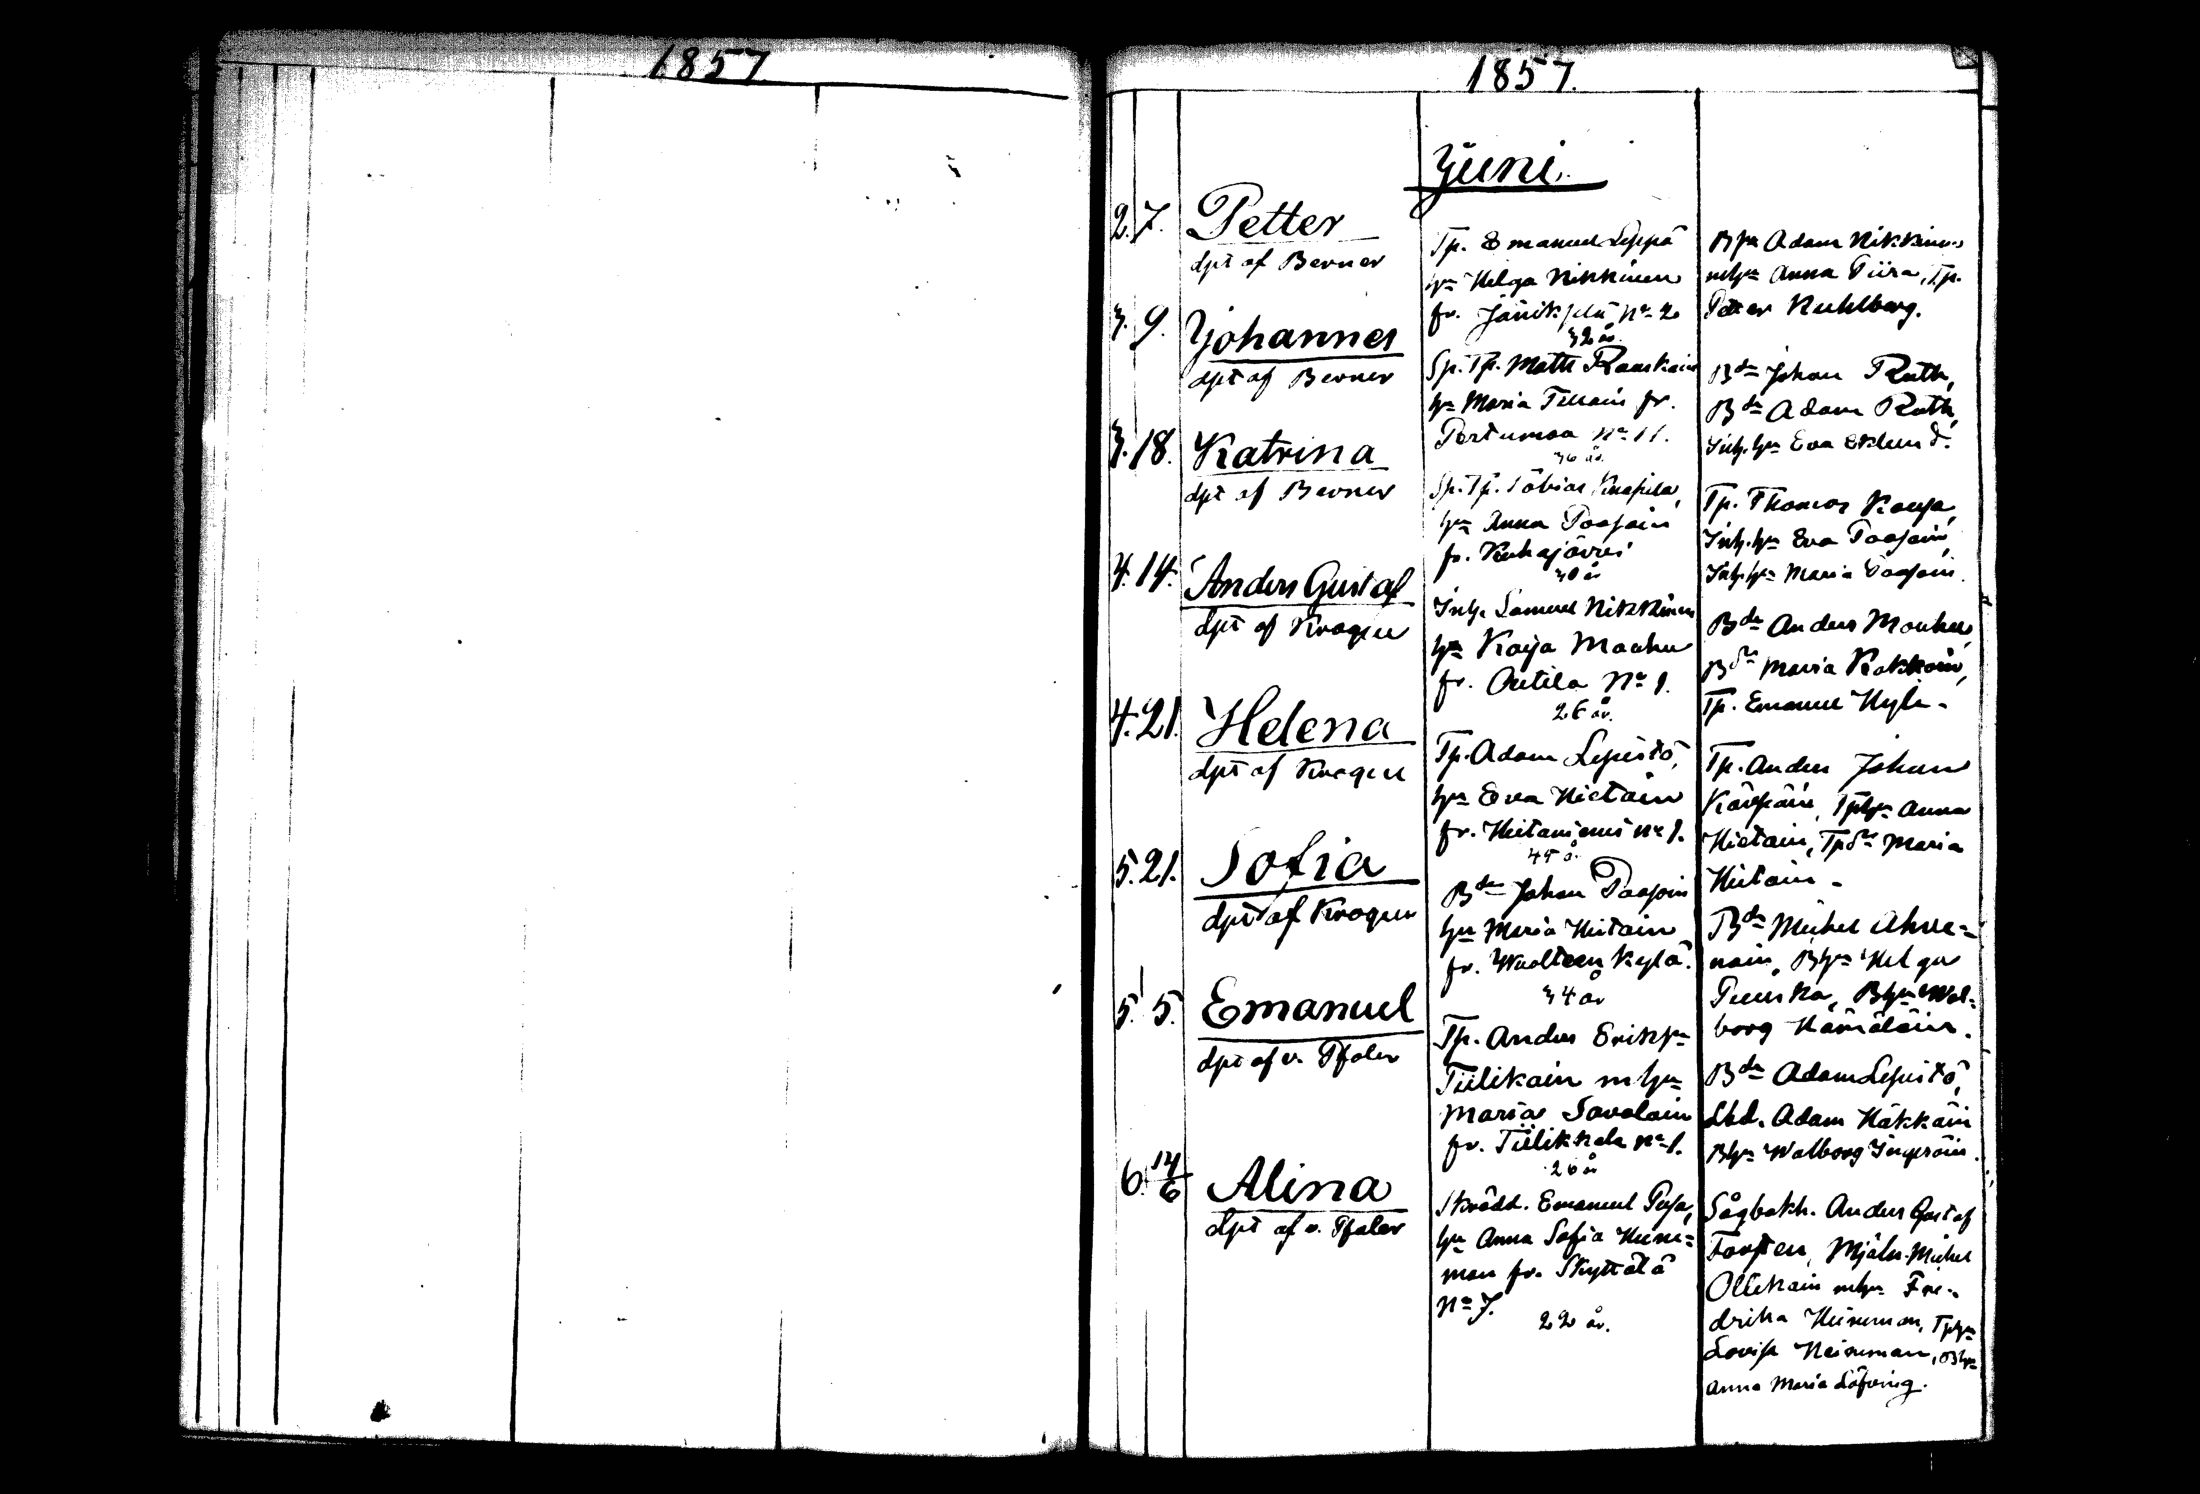 1857
1857.
Juni.
2. 7. Petter
dpt af Berner
Tp. Emanuel Leppä
hu Helga Nikkinen
fr. No 2
32 år.
Bhu Adam Nikkinen
mhu Anna Piira, Tp.
Petter Kuhlberg.
3. 9. Johannes
dpt af Berner
Sp. Tp. Matts
hu Maria fr.
Portimoa No 11.
36 år.
Bdn Johan Ruth,
Bdn Adam Ruth,
Inh. hu Eva Eklund.
3. 18. Katrina
dpt af Berner
Sp. Tp. Tobias
hu Anna Paasoin
fr. Kuhajärvi
30 år
Tp. Thomas
Inh. hu Eva Paasoin,
Inh. hu Maria Paasoin.
4. 14. Anders Gustaf
dpt af Krogeu
Inh. Samuel Nikkinen
hu Kaija Maahu
fr. Autila No 1.
26 år.
Bdn Anders
Bdr Maria Kokkoin,
Tp. Emanuel
4. 21. Helena
dpt af Krogeu
Tp. Adam Lepistö,
hu Eva Hietain
fr. Hietaniemi No 1.
45 å.
Tp. Anders Johan
Kärpäin, Tphu Anna
Hietain, Tpdr Maria
Hietain -
5. 21. Sofia
dpt af Krogeu
Bdn Johan Paasoin
hu Maria Hietain
fr. kylä.
34 år
Bdn Michel Ahve=
nain, Bhu Helga
Bhu Wal=
borg Hämäläin.
5. 5. Emanuel
dpt af v. Pfaler
Tp. Anders Erikss
Tiilikain mhu
Maria Savolain
fr. Tiilikkala No 1.
26 år
Bdn Adam Lepistö,
Adam Häkkäin
Bhu Walborg Ingeroin.
6. 14/6 Alina
dpt af v. Pfaler
Skrädd. Emanuel
hu Anna Sofia Heine=
man fr. Skyttälä
No 7.
22 år.
Sågbokh. Anders Gustaf
Forstén, Mjöln. Michel
Ollikain mhu Fre=
drika Heineman, Tphu
Lovisa Heineman, Bhu
Anna Maria Löfving.